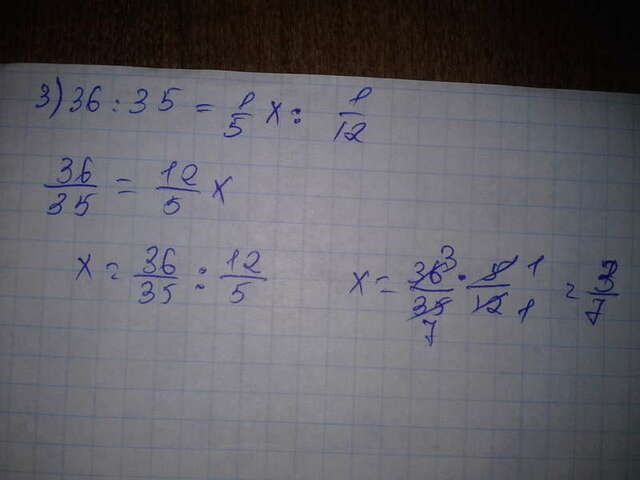 3) 36 : 35 = 1/5 x : 1/12
36/35 = 12/5 x
x = 36/35 : 12/5
x = 36/35 3 7 · 5/12 1 1 = 3/7